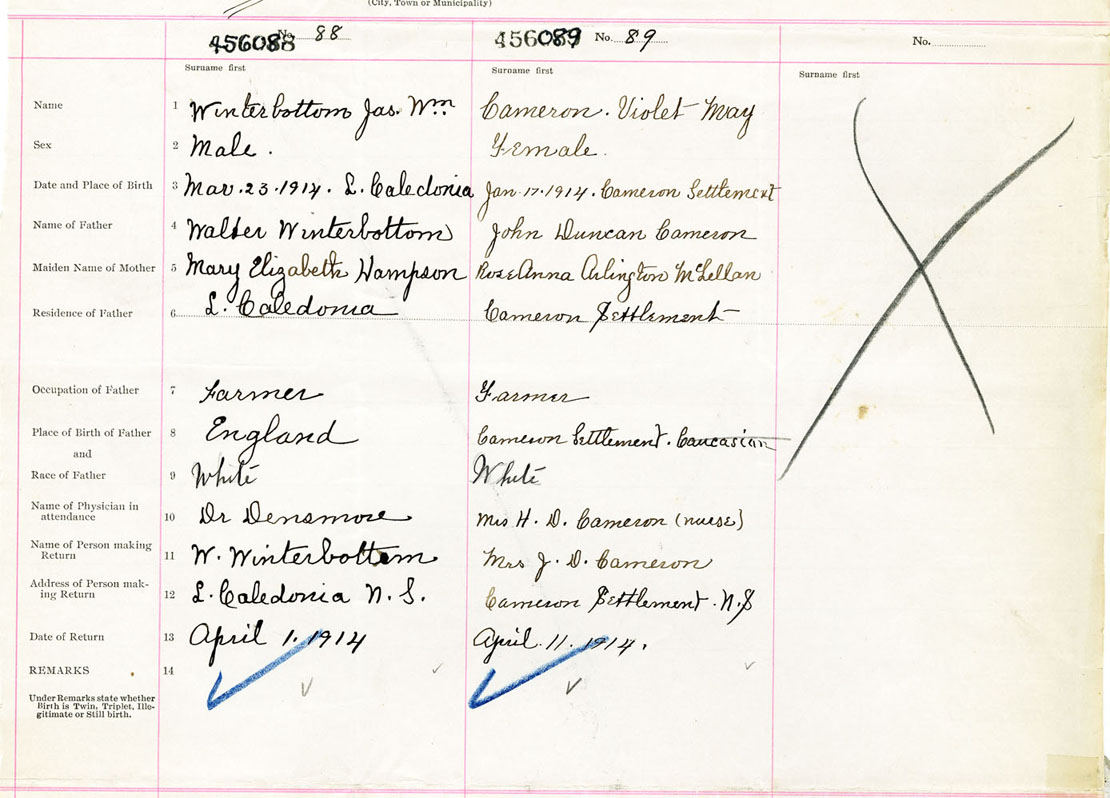 (City, Town or Municipality)
456088 No. 88 456089 No. 89 No.
Surname first Surname first Surname first
Name 1 Winterbottom Jas. Wm Cameron. Violet May
Sex 2 Male. Female.
Date and Place of Birth 3 Mar. 23. 1914. L. Caledonia Jan. 17. 1914. Cameron Settlement
Name of Father 4 Walter Winterbottom John Duncan Cameron
Maiden Name of Mother 5 Mary Elizabeth Hampson Rose Anna Arlington McLellan
Residence of Father 6 L. Caledonia Cameron Settlement
Occupation of Father 7 Farmer Farmer
Place of Birth of Father 8 England Cameron Settlement. Caucasian
and
Race of Father 9 White White
Name of Physician in
attendance 10 Dr Densmore Mrs H. D. Cameron (nurse)
Name of Person making
Return 11 W. Winterbottom Mrs J. D. Cameron
Address of Person mak-
ing Return 12 L. Caledonia N.S. Cameron Settlement. N.S
Date of Return 13 April 1. 1914 April. 11. 1914.
REMARKS 14
Under Remarks state whether
Birth is Twin, Triplet, Ille-
gitimate or Still birth.